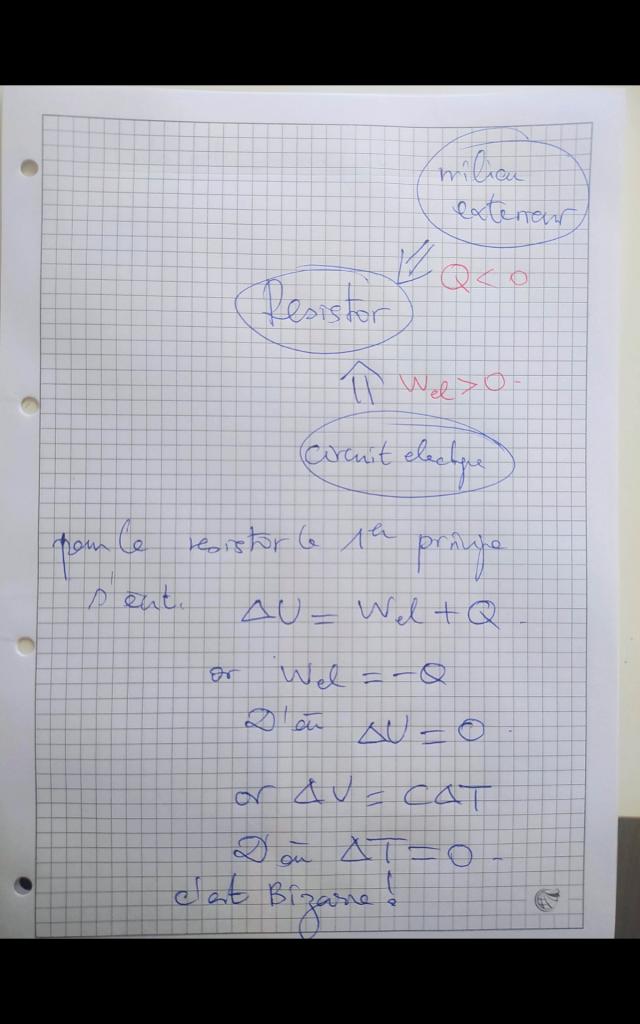 milieu
exterieur
Q < 0
Resistor
Wel > 0.
circuit electrique
pour le resistor le 1er principe
s'écrit. ΔU = Wel + Q.
or Wel = -Q
D'où ΔU = 0.
or ΔU = CΔT
D'où ΔT = 0.
c'est Bizarre !